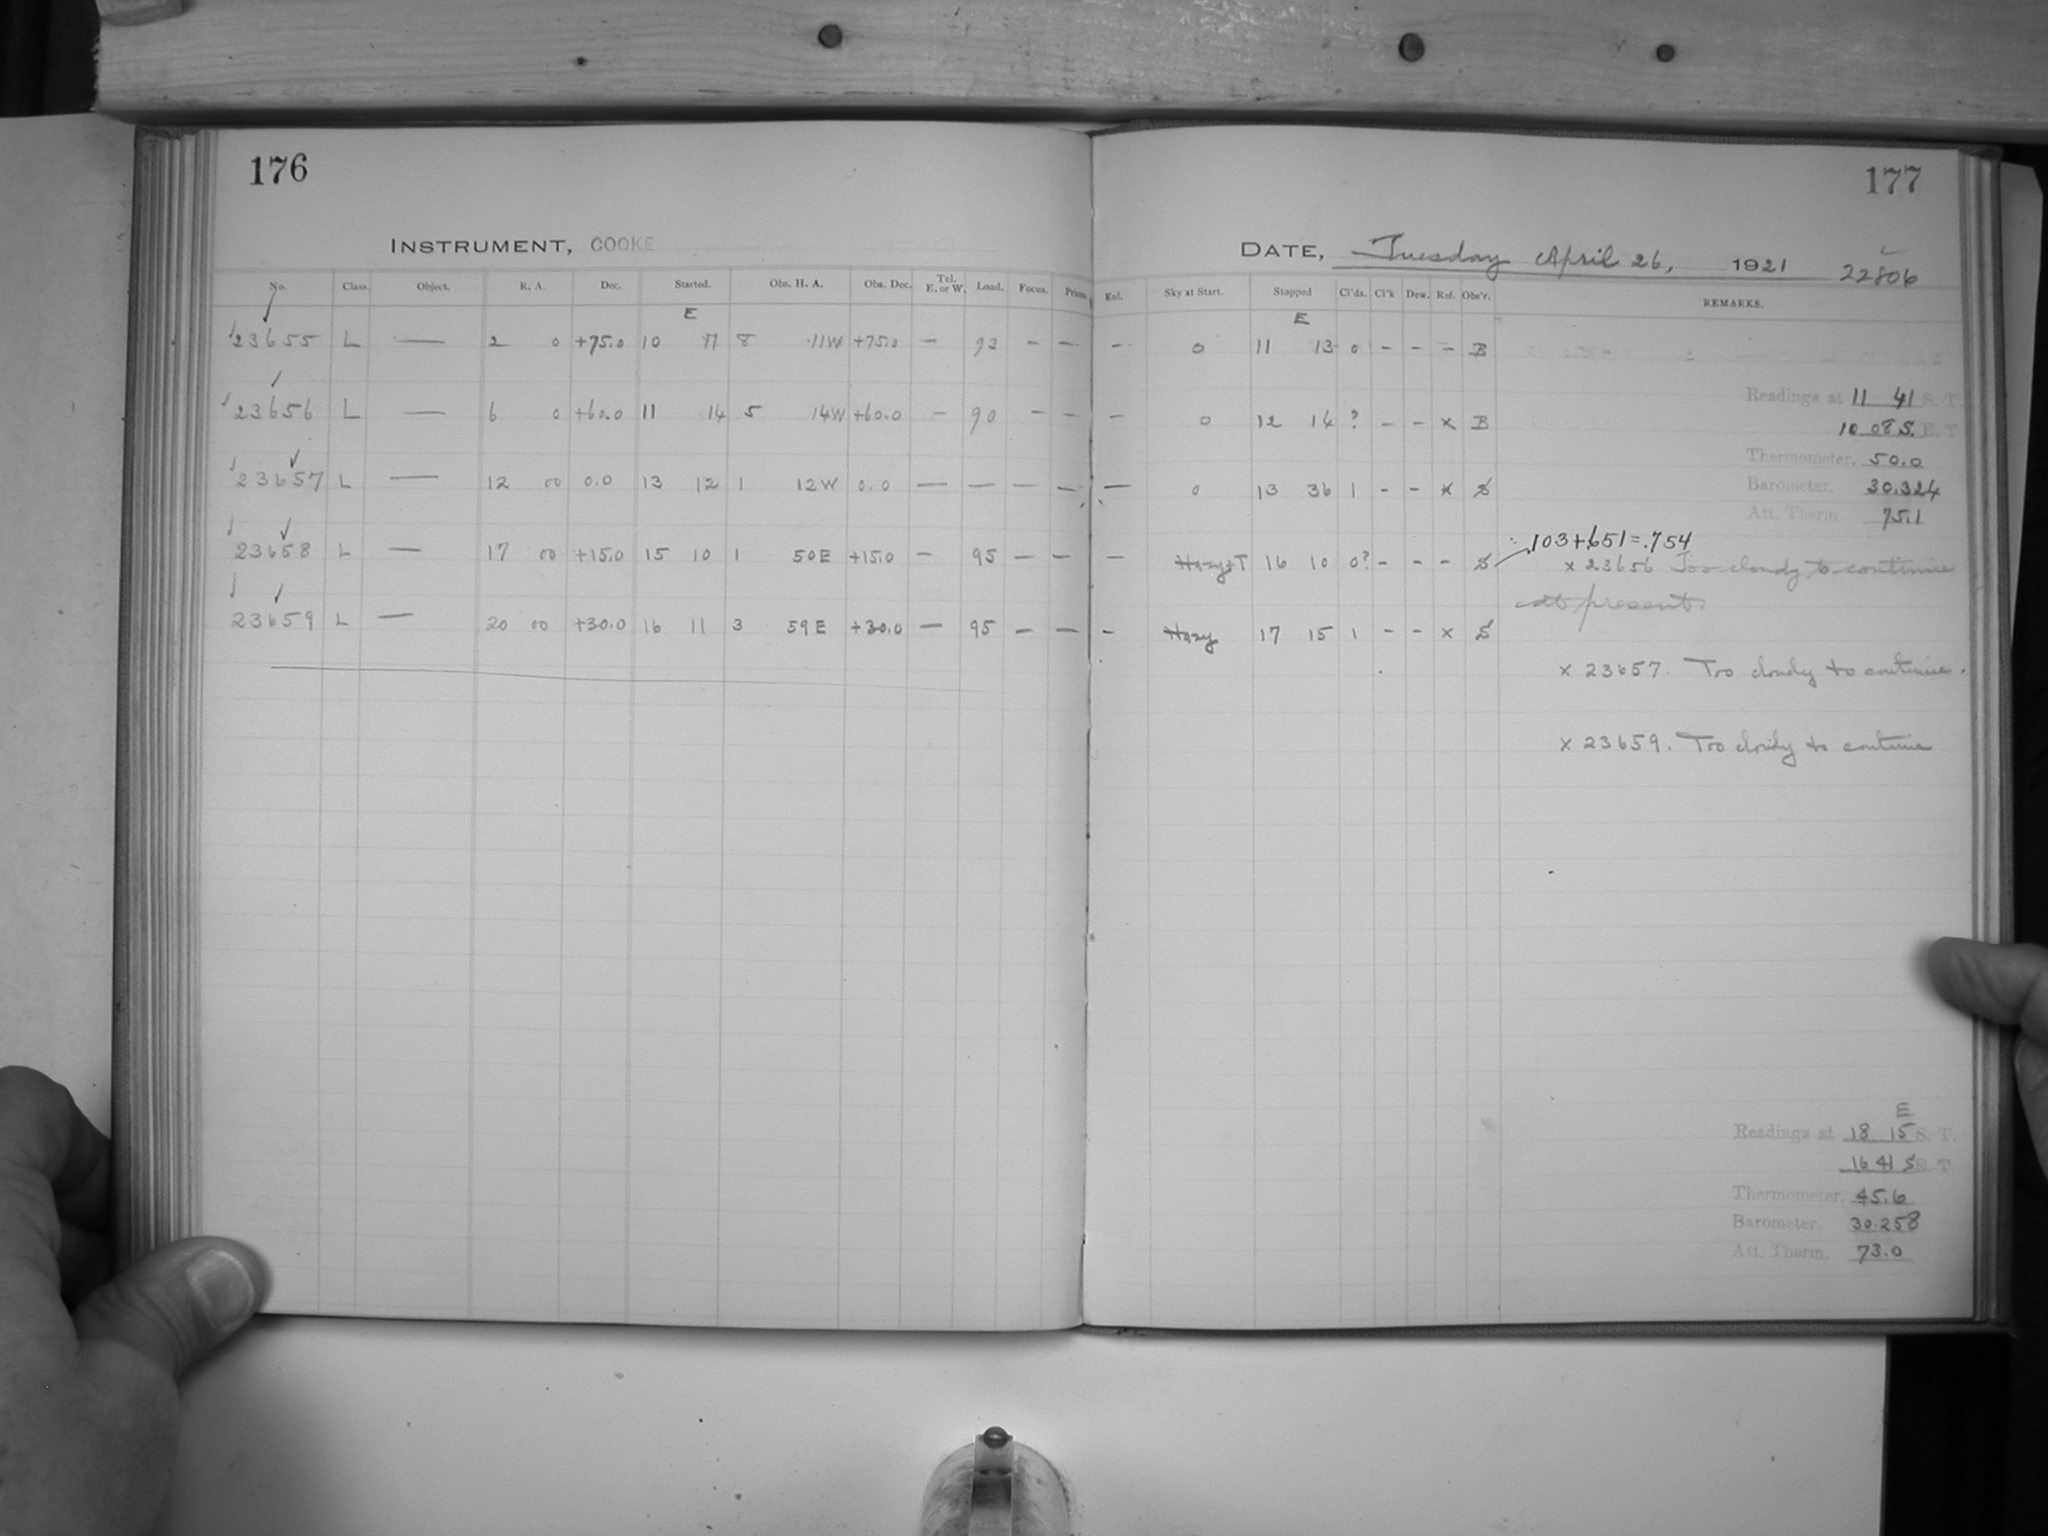 176
INSTRUMENT, COOKE
No. Class. Object. R. A. Dec. Started. Obs. H. A. Obs. Dec. Tel. E. or W. Load. Focus. Prism.
E
23655 L — 2 0 +75.0 10 11 8 11W +75.0 — 93 — —
23656 L — 6 0 +60.0 11 14 5 14W +60.0 — 90 — —
23657 L — 12 00 0.0 13 12 1 12W 0.0 — — — —
23658 L — 17 00 +15.0 15 10 1 50E +15.0 — 95 — —
23659 L — 20 00 +30.0 16 11 3 59E +30.0 — 95 — —
177
DATE, Tuesday April 26, 1921 22806
Enl. Sky at Start. Stopped Cl'ds. Cl'k Dew. Ref. Obs'r. REMARKS.
E
— 0 11 13 0 — — — B
— 0 12 14 ? — — x B
— 0 13 36 1 — — x S
— Hazy+T 16 10 0? — — — S
— Hazy 17 15 1 — — x S
Readings at 11 41 S. T.
10 08 S. E. T.
Thermometer. 50.0
Barometer. 30.324
Att. Therm. 75.1
.103+.651=.754
x 23656 Too cloudy to continue
at present.
x 23657. Too cloudy to continue.
x 23659. Too cloudy to continue
E
Readings at 18 15 S. T.
16 41 S E. T.
Thermometer. 45.6
Barometer. 30.258
Att. Therm. 73.0